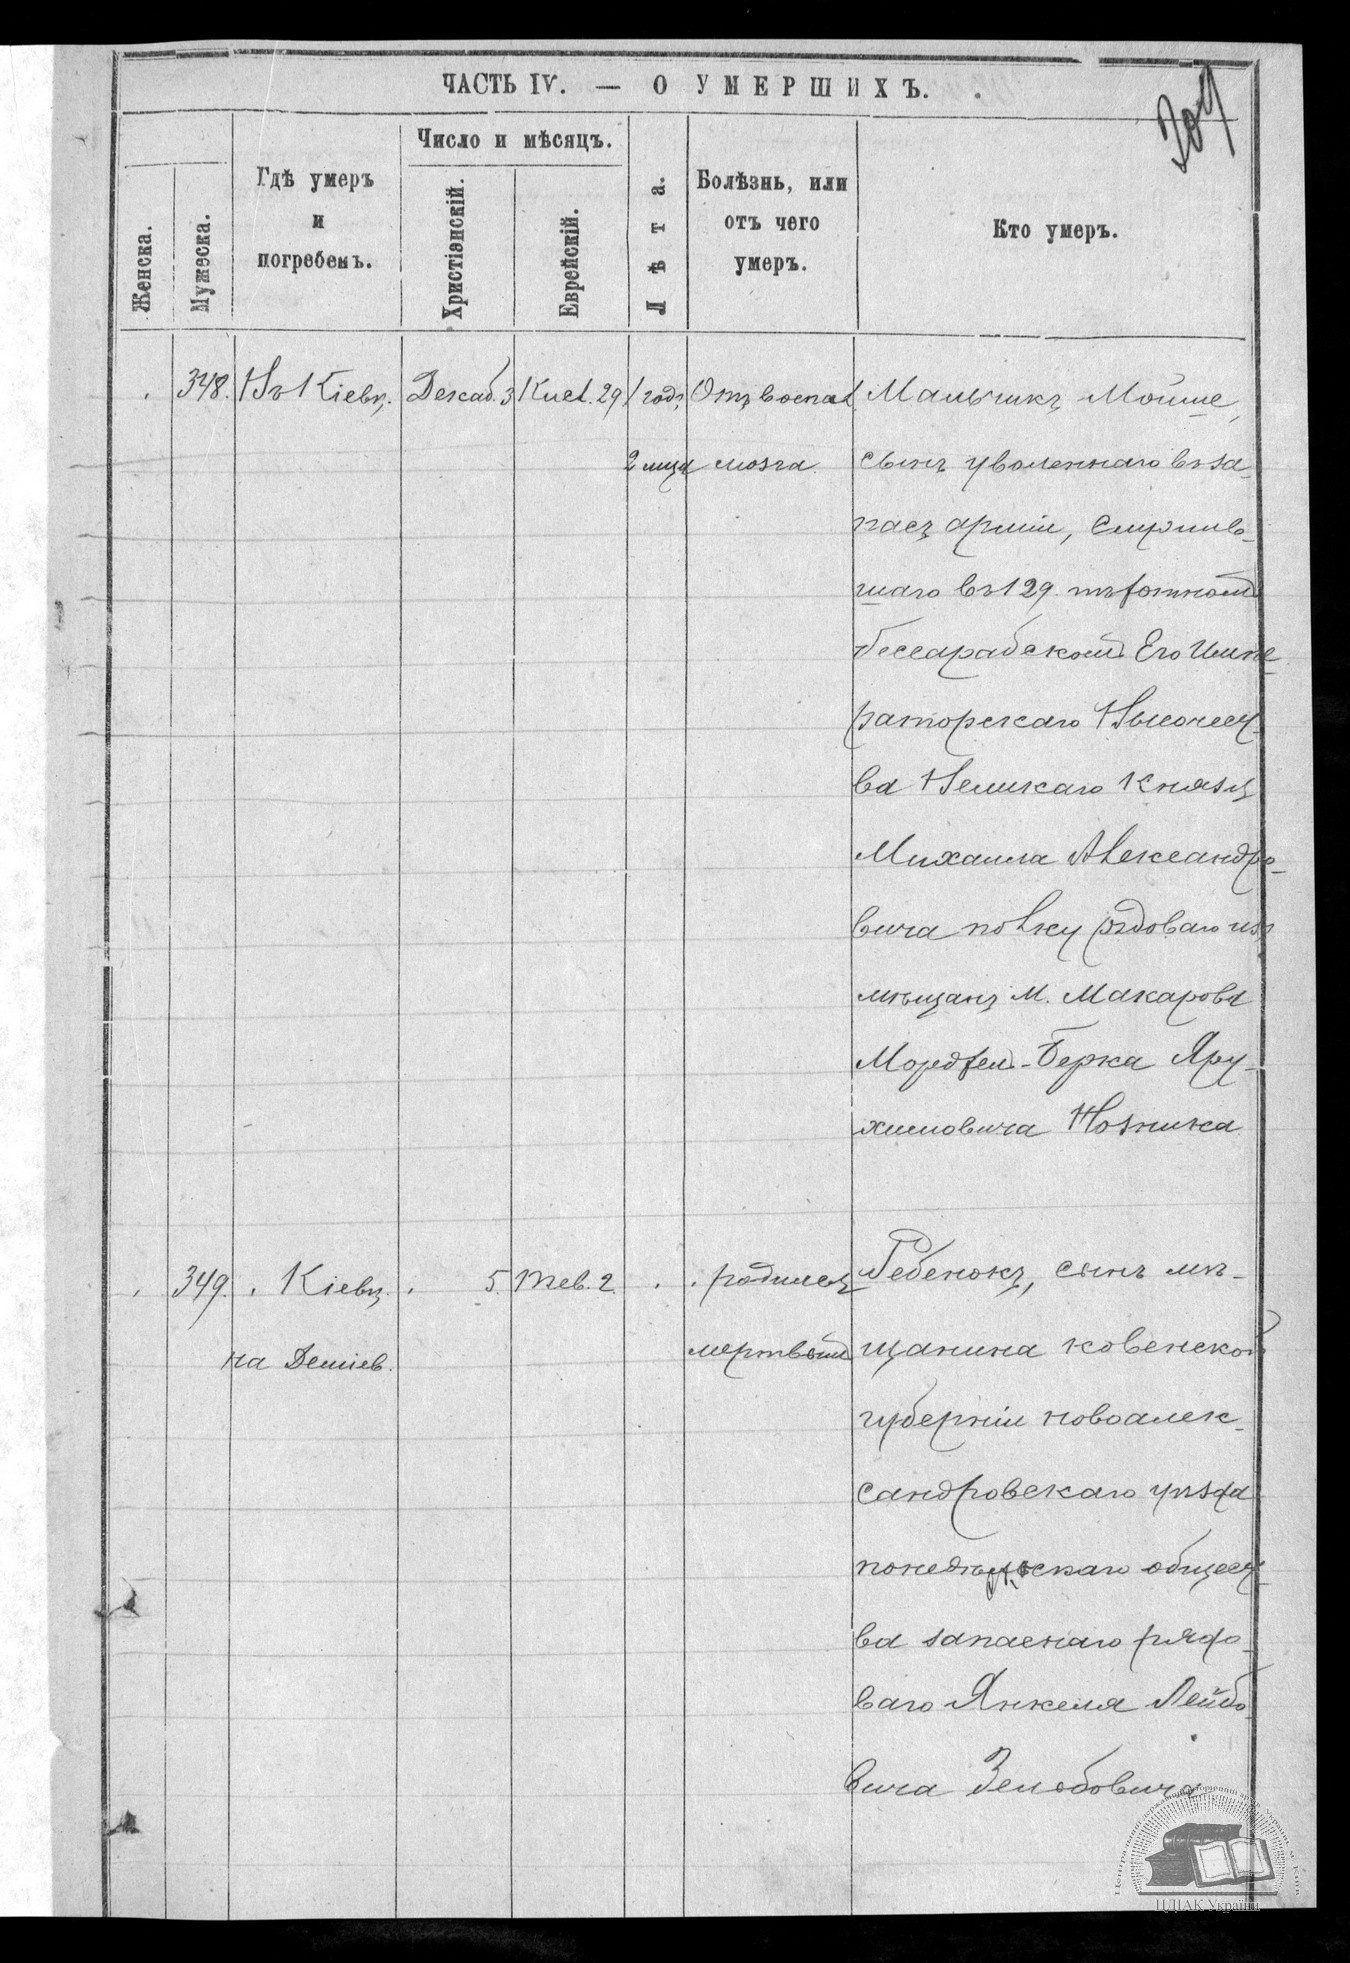 ЧАСТЬ IV. — О УМЕРШИХЪ.
304
Женска.
Мужеска.
Гдѣ умеръ
и
погребенъ.
Число и мѣсяцъ.
Христіанскій.
Еврейскій.
Лѣта.
Болѣзнь, или
отъ чего
умеръ.
Кто умеръ.
348. Въ Кіевѣ. Декаб. 3 Кисл. 29 1 годъ Отъ воспал. Мальчикъ Мойше,
2 мца мозга. сынъ уволеннаго въ за-
пасъ арміи, служив-
шаго въ 129. пѣхотномъ
бессарабскомъ Его Импе-
раторскаго Высочест-
ва Великаго Князя
Михаила Александро-
вича полку рядоваго изъ
мѣщанъ м. Макарова
Мордхел-Берка Яру-
химовича Возника
349. Кіевѣ. 5. Тев. 2. родился Ребенокъ, сынъ мѣ-
на Деміев. мертвый щанина ковенской
губерніи новоалек-
сандровскаго уѣзда
понедѣльскаго общест-
ва запаснаго рядо-
ваго Янкеля Лейбо-
вича Зельбовича
ЦДІАК України